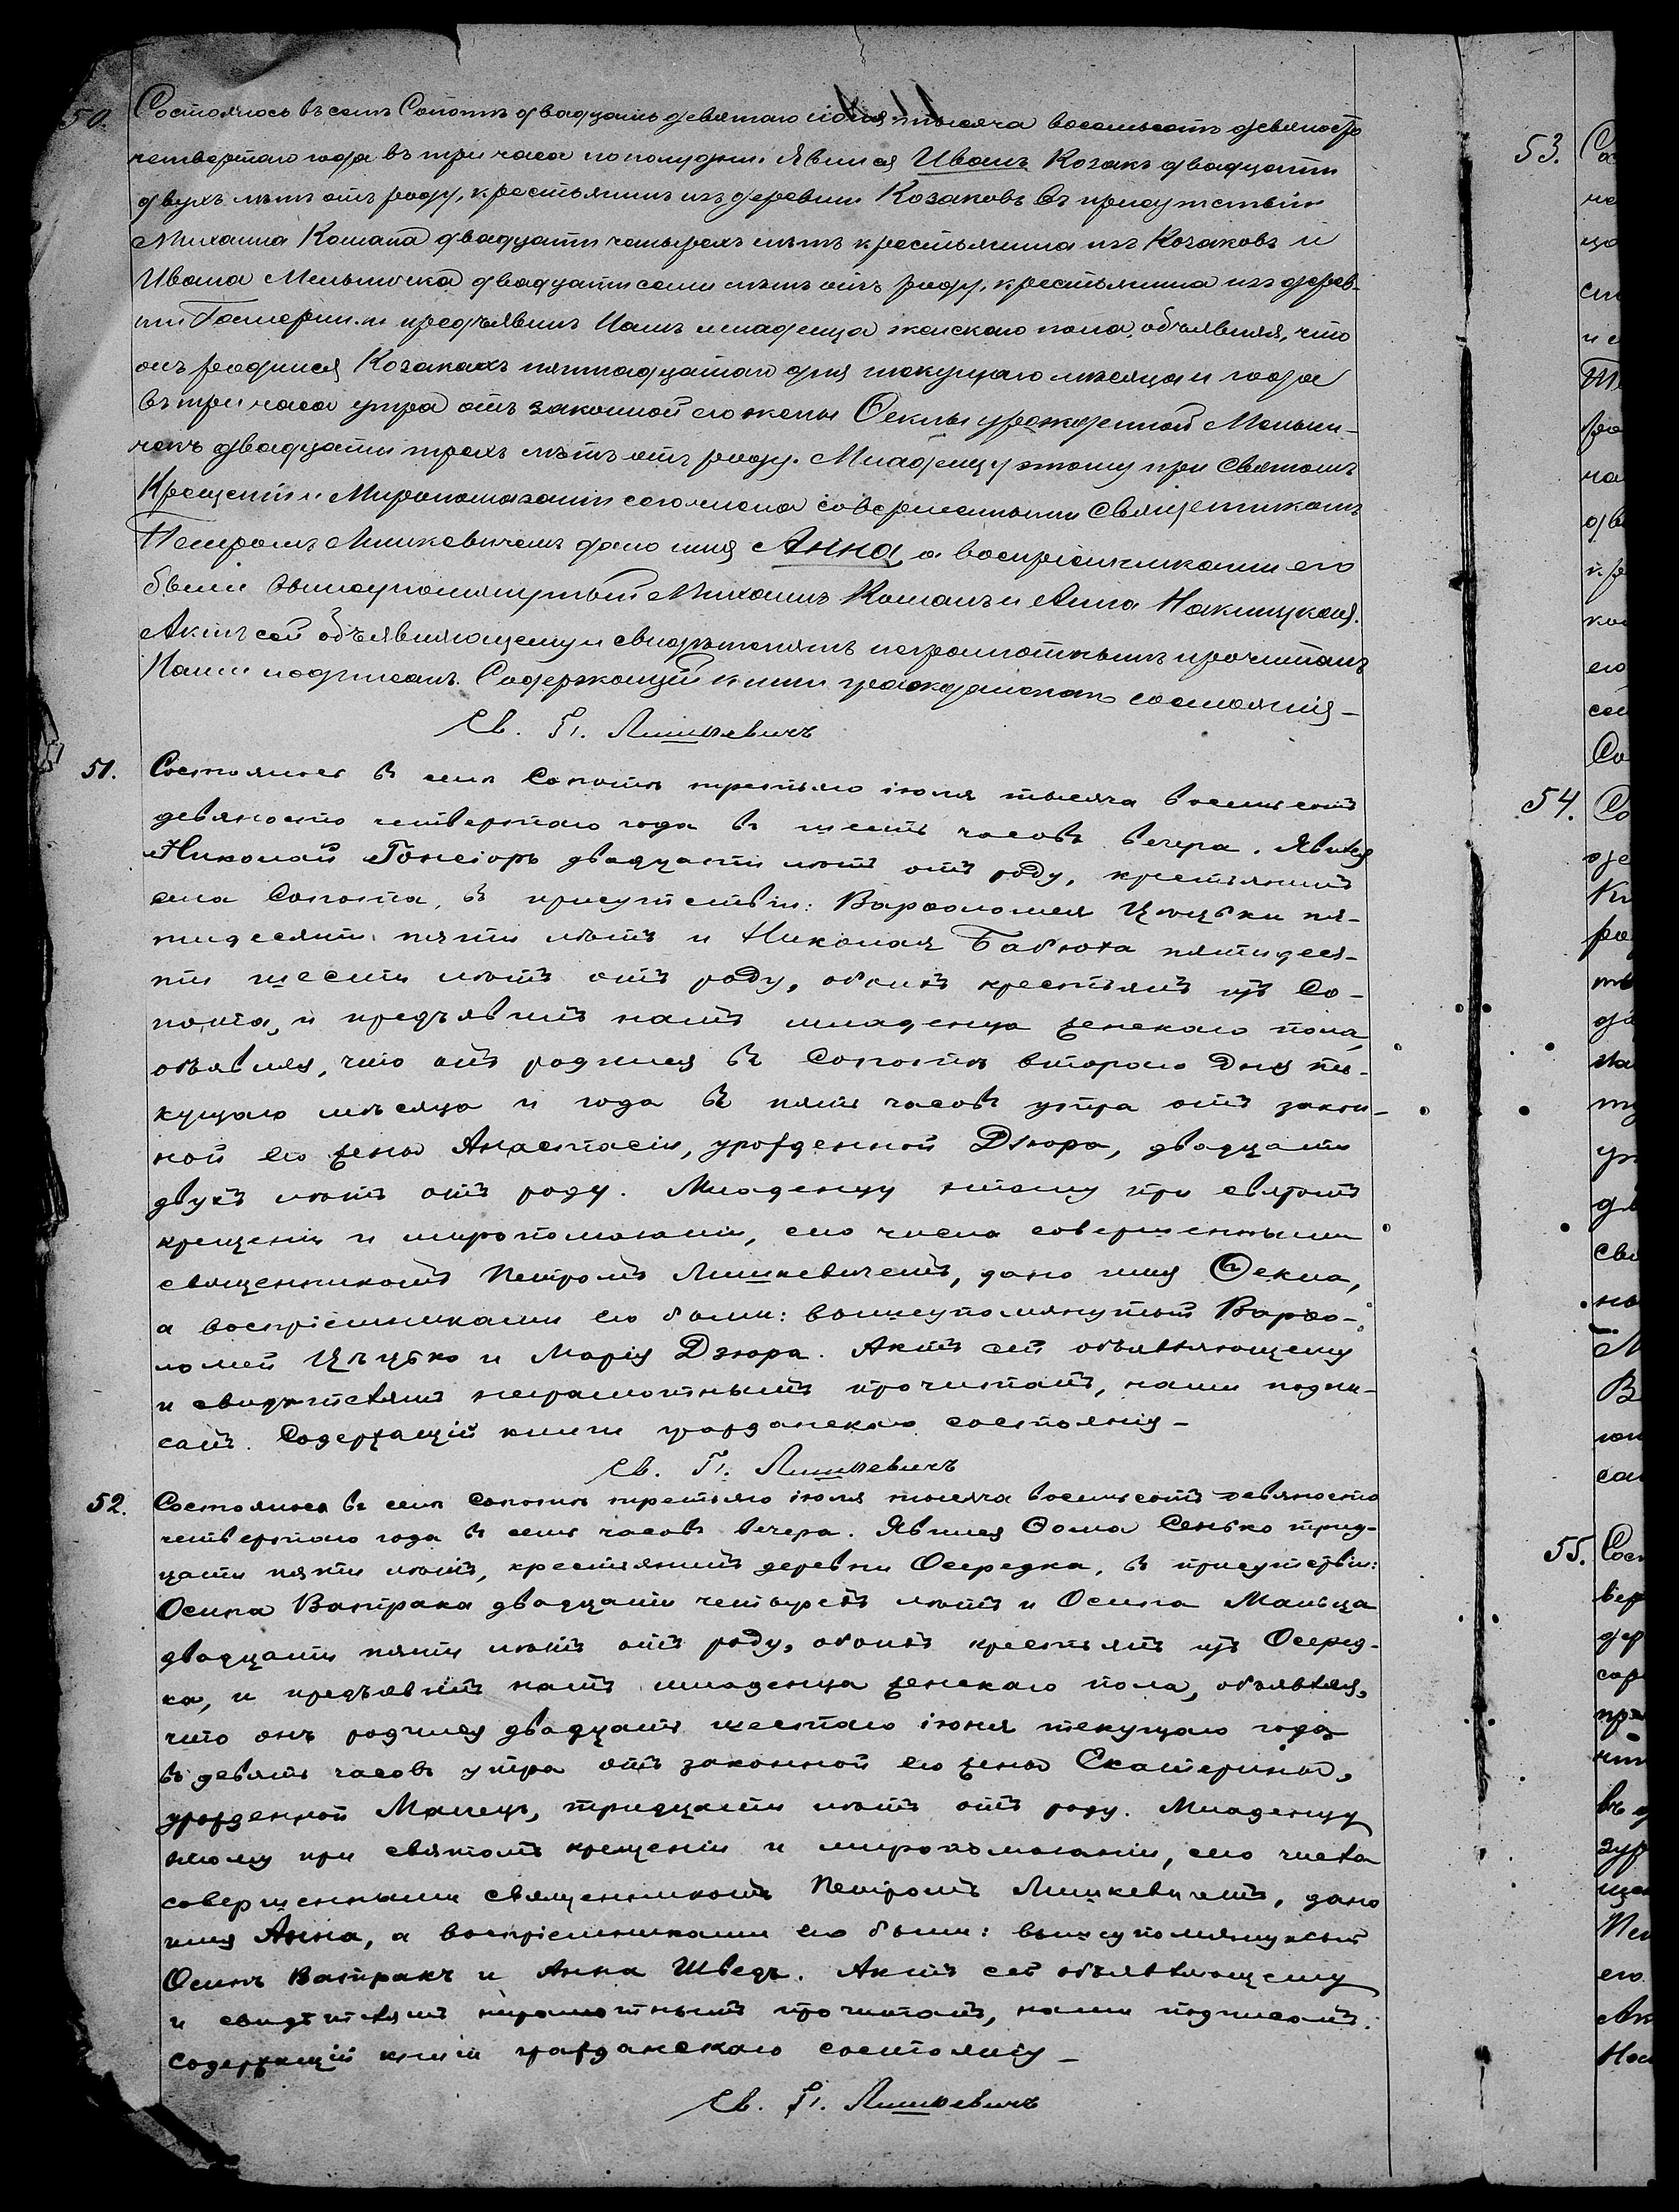 50. Состоялось въ селѣ Сопотѣ двадцать девятаго іюня тысяча восемьсотъ девяносто
четвертаго года въ три часа по полудни. Явился Иванъ Козакъ двадцати
двухъ лѣтъ отъ роду, крестьянинъ изъ деревни Козаковъ въ присутствіи
Михаила Комана двадцати четырехъ лѣтъ крестьянина изъ Козаковъ и
Ивана Мельничка двадцати семи лѣтъ отъ роду, крестьянина изъ дерев-
ни и предъявилъ Намъ младенца женскаго пола, объявляя, что
онъ родился Козакахъ пятнадцатаго дня текущаго мѣсяца и года
въ три часа утра отъ законной его жены Ѳеклы урожденной
двадцати трехъ лѣтъ отъ роду. Младенцу этому при Святомъ
Крещеніи и Миропомазаніи сего числа совершенными Священникомъ
Петромъ Лишкевичемъ дано имя Анна, а воспріемниками его
были вышеупомянутый Михаилъ Команъ и Анна
Актъ сей объявляющему и свидѣтелямъ неграмотнымъ прочитанъ
Нами подписанъ. Содержащій книги гражданскаго состоянія –
Св. П. Лишкевичъ
51. Состоялось въ селѣ Сопотѣ третьяго іюля тысяча восемьсотъ
девяносто четвертаго года въ шесть часовъ вечера. Явился
Николай Гонсіоръ двадцати лѣтъ отъ роду, крестьянинъ
села Сопота, въ присутствіи: Варѳоломея Цыцьки пя-
тидесяти пяти лѣтъ и Николая Бабюка пятидеся-
ти шести лѣтъ отъ роду, обоихъ крестьянъ изъ Со-
пота, и предъявилъ намъ младенца женскаго пола,
объявляя, что онъ родился въ Сопотѣ втораго дня те-
кущаго мѣсяца и года въ пять часовъ утра отъ закон-
ной его жены Анастасіи, урожденной Дзюра, двадцати
двухъ лѣтъ отъ роду. Младенцу этому при святомъ
крещеніи и миропомазаніи, сего числа совершенными
священникомъ Петромъ Лишкевичемъ, дано имя Ѳекла,
а воспріемниками его были: вышеупомянутый Варѳо-
ломей и Марія Дзюра. Актъ сей объявляющему
и свидѣтелямъ неграмотнымъ прочитанъ, нами подпи-
санъ. Содержащій книги гражданскаго состоянія –
Св. П. Лишкевичъ
52. Состоялось въ селѣ Сопотѣ третьяго іюля тысяча восемьсотъ девяносто
четвертаго года въ семь часовъ вечера. Явился Ѳома Сенько трид-
цати пяти лѣтъ, крестьянинъ деревни Осередка, въ присутствіи:
Осипа Ватрака двадцати четырехъ лѣтъ и Осипа Мальца
двадцати пяти лѣтъ отъ роду, обоихъ крестьянъ изъ Осеред-
ка, и предъявилъ намъ младенца женскаго пола, объявляя,
что онъ родился двадцать шестаго іюня текущаго года
въ девять часовъ утра отъ законной его жены Екатерины,
урожденной Малецъ, тридцати лѣтъ отъ роду. Младенцу
этому при святомъ крещеніи и миропомазаніи, сего числа
совершенными священникомъ Петромъ Лишкевичемъ, дано
имя Анна, а воспріемниками его были: вышеупомянутый
Осипъ Ватракъ и Анна Шведъ. Актъ сей объявляющему
и свидѣтелямъ неграмотнымъ прочитанъ, нами подписанъ.
Содержащій книги гражданскаго состоянія –
Св. П. Лишкевичъ
53.
54.
55.